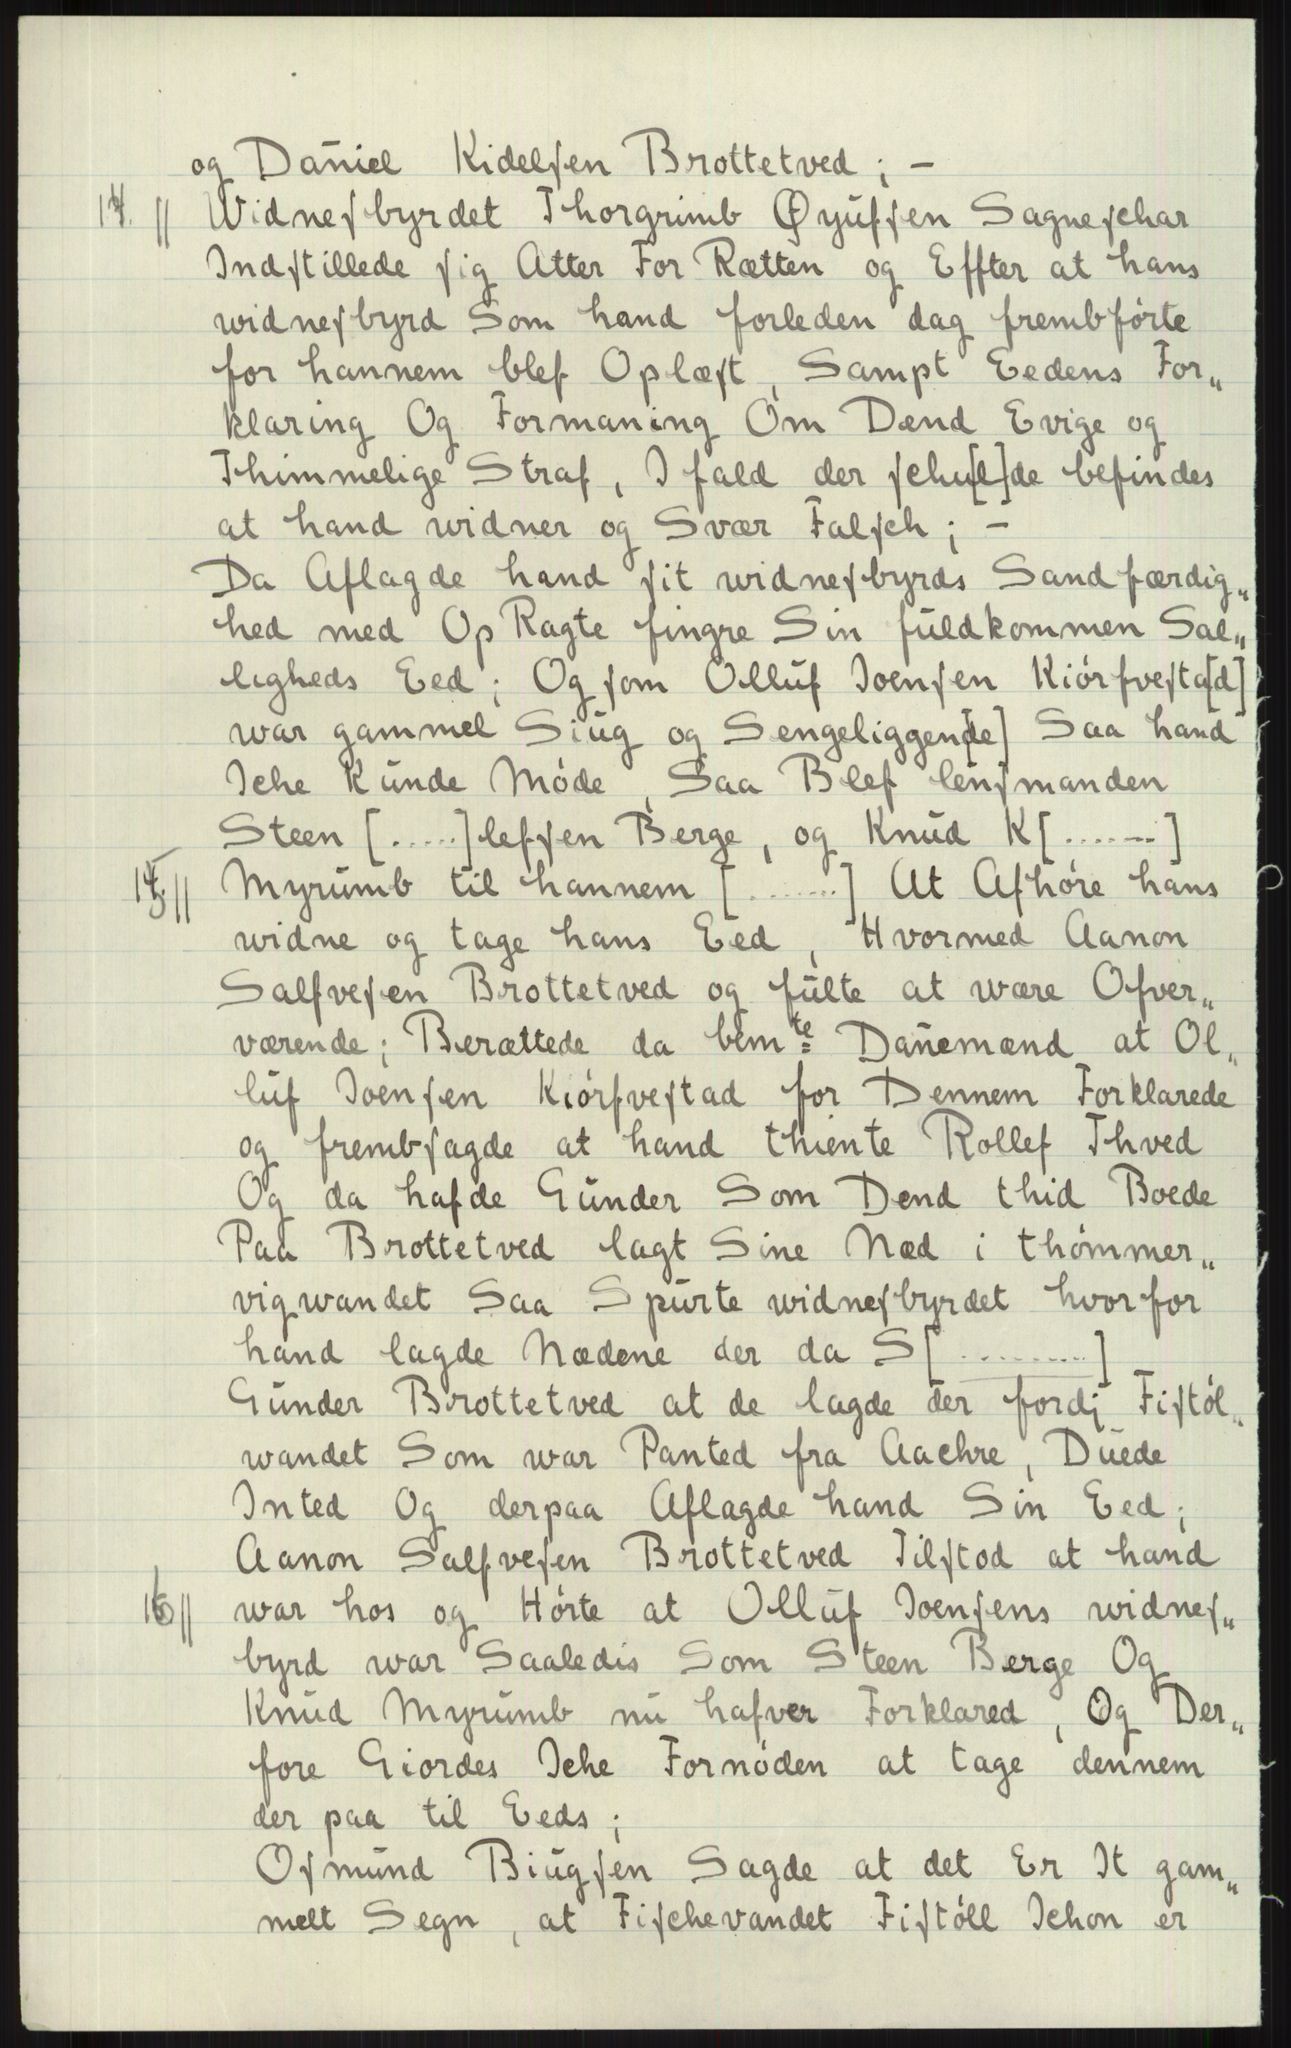 og Daniel Kidelſen Brottetved ; –
14. || Widneſbyrdet Thorgrimb Øyufſen Sagneſchar
Indſtillede ſig Atter For Rætten og Effter at hans
widneſbyrd Som hand forleden dag frembførte
for hannem blef Oplæſt, Sampt Eedens For„
klaring Og Formaning Om Dænd Evige og
Thimmelige Straf, I fald der ſchu[l]de befindes
at hand widner og Svær Falſch ; –
Da Aflagde hand ſit widneſbyrds Sandfærdig„
hed med Op Ragte fingre Sin fuldkommen Sal„
ligheds Eed ; Og ſom Olluf Joenſen Kiórfveſta[d]
war gammel Siug og Sengeliggen[de] Saa hand
Iche Kunde Móde, Saa Blef lenſmanden
Steen [.....]lefſen Berge, og Knud K[.......]
15. || Myrumb til hannem [........] At Afhóre hans
widne og tage hans Eed, Hvormed Aanon
Salfveſen Brottetved og fulte at wære Ofver„
værende ; Berættede da bem<sup>te</sup> Danemænd at Ol„
luf Joenſen Kiórfveſtad for Dennem Forklarede
og frembſagde at hand thiente Rollef Thved
Og da hafde Gunder Som Dend thid Boede
Paa Brottetved lagt Sine Næd i thómmer„
vigwandet Saa Spurte widneſbyrdet hvorfor
hand lagde Nædene der da S[..........]
Gunder Brottetved at de lagde der fordj Fiſtól„
wandet Som war Panted fra Aachre, Duede
Inted Og derpaa Aflagde hand Sin Eed ;
Aanon Salfveſen Brottetved Tilſtod at hand
16 || war hos og Hórte at Olluf Joenſens widneſ„
byrd war Saaledis Som Steen Berge Og
Knud Myrumb nu hafver Forklared, Og Der„
fore Giordes Iche Fornóden at tage dennem
der paa til Eeds ;
Oſmund Biugſen Sagde at det Er It gam„
melt Segn, at Fiſchevandet Fiſtóll Ichon er